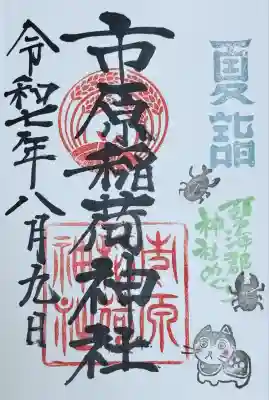 夏詣
市原稲荷神社
令和七年八月九日
神社めぐり
市原
稲荷
神社